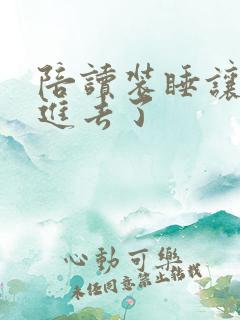 陪讀裝睡讓
進去了
心動可樂
未经同意禁止转载